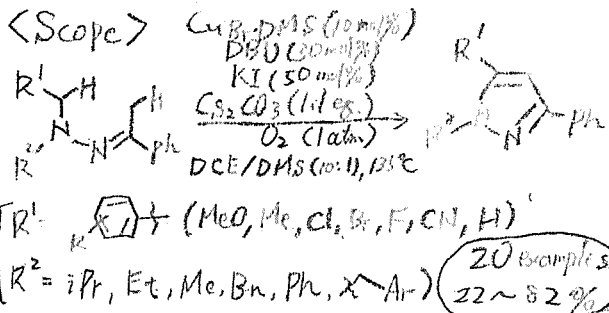 <Scope>
CuBr·DMS (10 mol%)
DBU (30 mol%)
KI (50 mol%)
Cs2CO3 (1.1 eq.)
O2 (1 atm)
DCE/DMS (10:1), 135°C
R' H H N R² N Ph
R' R² N N Ph
R' = R (MeO, Me, Cl, Br, F, CN, H)
R² = iPr, Et, Me, Bn, Ph, Ar
20 examples
22~82%